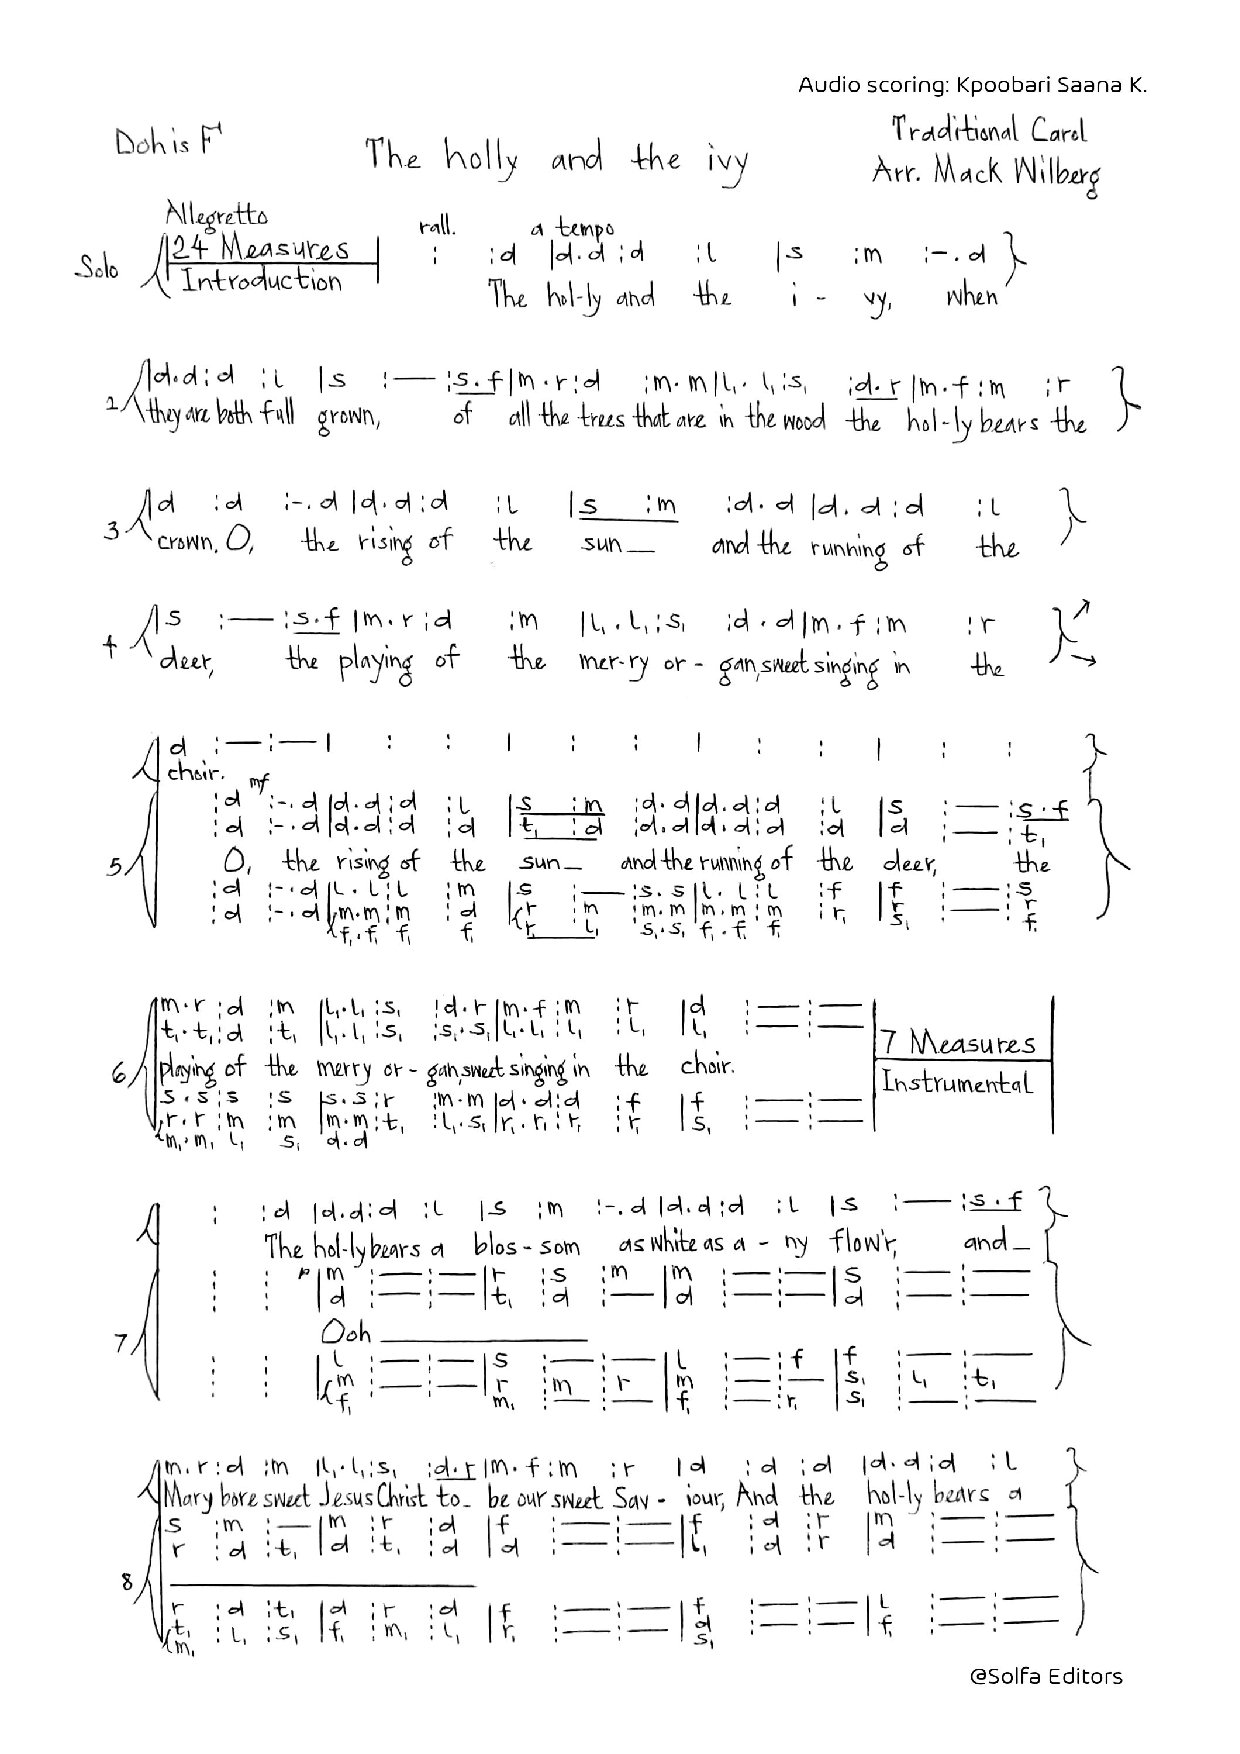 Audio scoring: Kpoobari Saana K.
Doh is F
The holly and the ivy
Traditional Carol
Arr. Mack Wilberg
Allegretto
rall. a tempo
Solo 24 Measures : :d |d.d :d :l |s :m :-.d
Introduction The hol-ly and the i - vy, when
2 |d.d :d :l |s :— :s.f |m.r :d :m.m |l₁.l₁ :s₁ :d.r |m.f :m :r
they are both full grown, of all the trees that are in the wood the hol-ly bears the
3 |d :d :-.d |d.d :d :l |s :m :d.d |d.d :d :l
crown, O, the rising of the sun_ and the running of the
4 |s :— :s.f |m.r :d :m |l₁.l₁ :s₁ :d.d |m.f :m :r
deer, the playing of the mer-ry or-gan, sweet singing in the
5 |d :— :— | : : | : : | : : | : :
choir. mf
:d :-.d |d.d :d :l |s :m :d.d |d.d :d :l |s :— :s.f
:d :-.d |d.d :d :d |t₁ :d :d.d |d.d :d :d |d :— :t₁
O, the rising of the sun_ and the running of the deer, the
:d :-.d |l.l :l :m |s :— :s.s |l.l :l :f |f :— :s
:d :-.d |m.m :m :d |r :m :m.m |m.m :m :r₁ |r :— :r
f₁.f₁ f₁ f₁ r₁ l₁ s₁.s₁ f₁.f₁ f₁ s₁ f₁
6 |m.r :d :m |l₁.l₁ :s₁ :d.r |m.f :m :r |d :— :—
t₁.t₁ :d :t₁ |l₁.l₁ :s₁ :s₁.s₁ |l₁.l₁ :l₁ :l₁ |l₁ :— :—
7 Measures
Instrumental
playing of the merry or-gan, sweet singing in the choir.
s.s :s :s |s.s :r :m.m |d.d :d :f |f :— :—
r.r :m :m |m.m :t₁ :l₁.s₁ |r₁.r₁ :r₁ :r₁ |s₁ :— :—
m₁.m₁ l₁ s₁ d.d
7 : :d |d.d :d :l |s :m :-.d |d.d :d :l |s :— :s.f
The hol-ly bears a blos-som as white as a-ny flow'r, and_
: : p |m :— :— |r :s :m |m :— :— |s :— :—
: : |d :— :— |t₁ :d :— |d :— :— |d :— :—
Ooh
: : |l :— :— |s :— :— |l :— :f |f :— :—
: : |m :— :— |r :m :r |m :— :— |s₁ :l₁ :t₁
f₁ m₁ :— :— f₁ :— :r₁ s₁ :— :—
8 |m.r :d :m |l₁.l₁ :s₁ :d.r |m.f :m :r |d :d :d |d.d :d :l
Mary bore sweet Jesus Christ to_ be our sweet Sav - iour, And the hol-ly bears a
s :m :— |m :r :d |f :— :— |f :d :r |m :— :—
r :d :t₁ |d :t₁ :d |d :— :— |l₁ :d :r |d :— :—
r :d :t₁ |d :r :d |f :— :— |f :— :— |l :— :—
t₁ :l₁ :s₁ |f₁ :m₁ :l₁ |r₁ :— :— |d :— :— |f₁ :— :—
m₁ s₁
@Solfa Editors